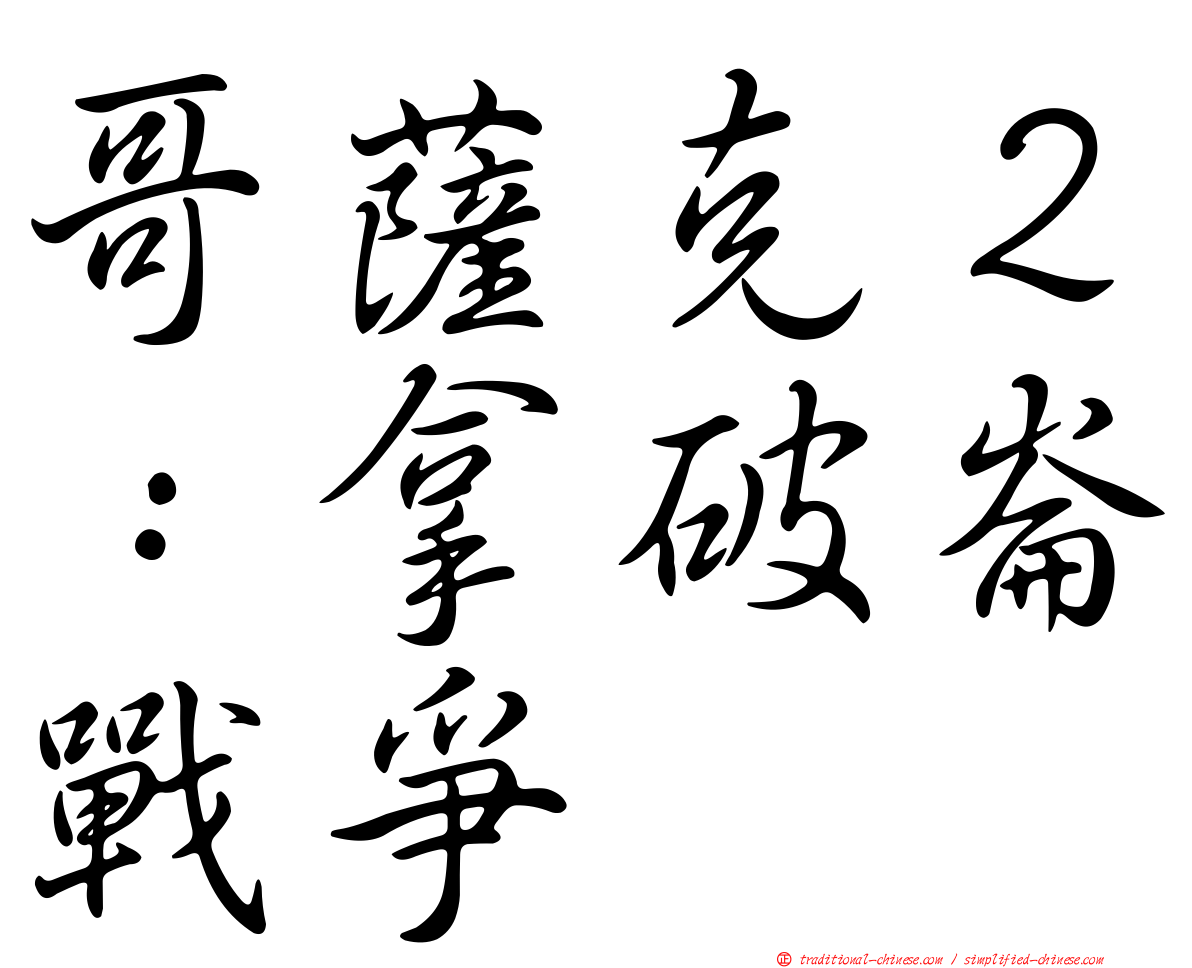 哥薩克2
：拿破崙
戰爭
㊣ traditional-chinese.com / simplified-chinese.com